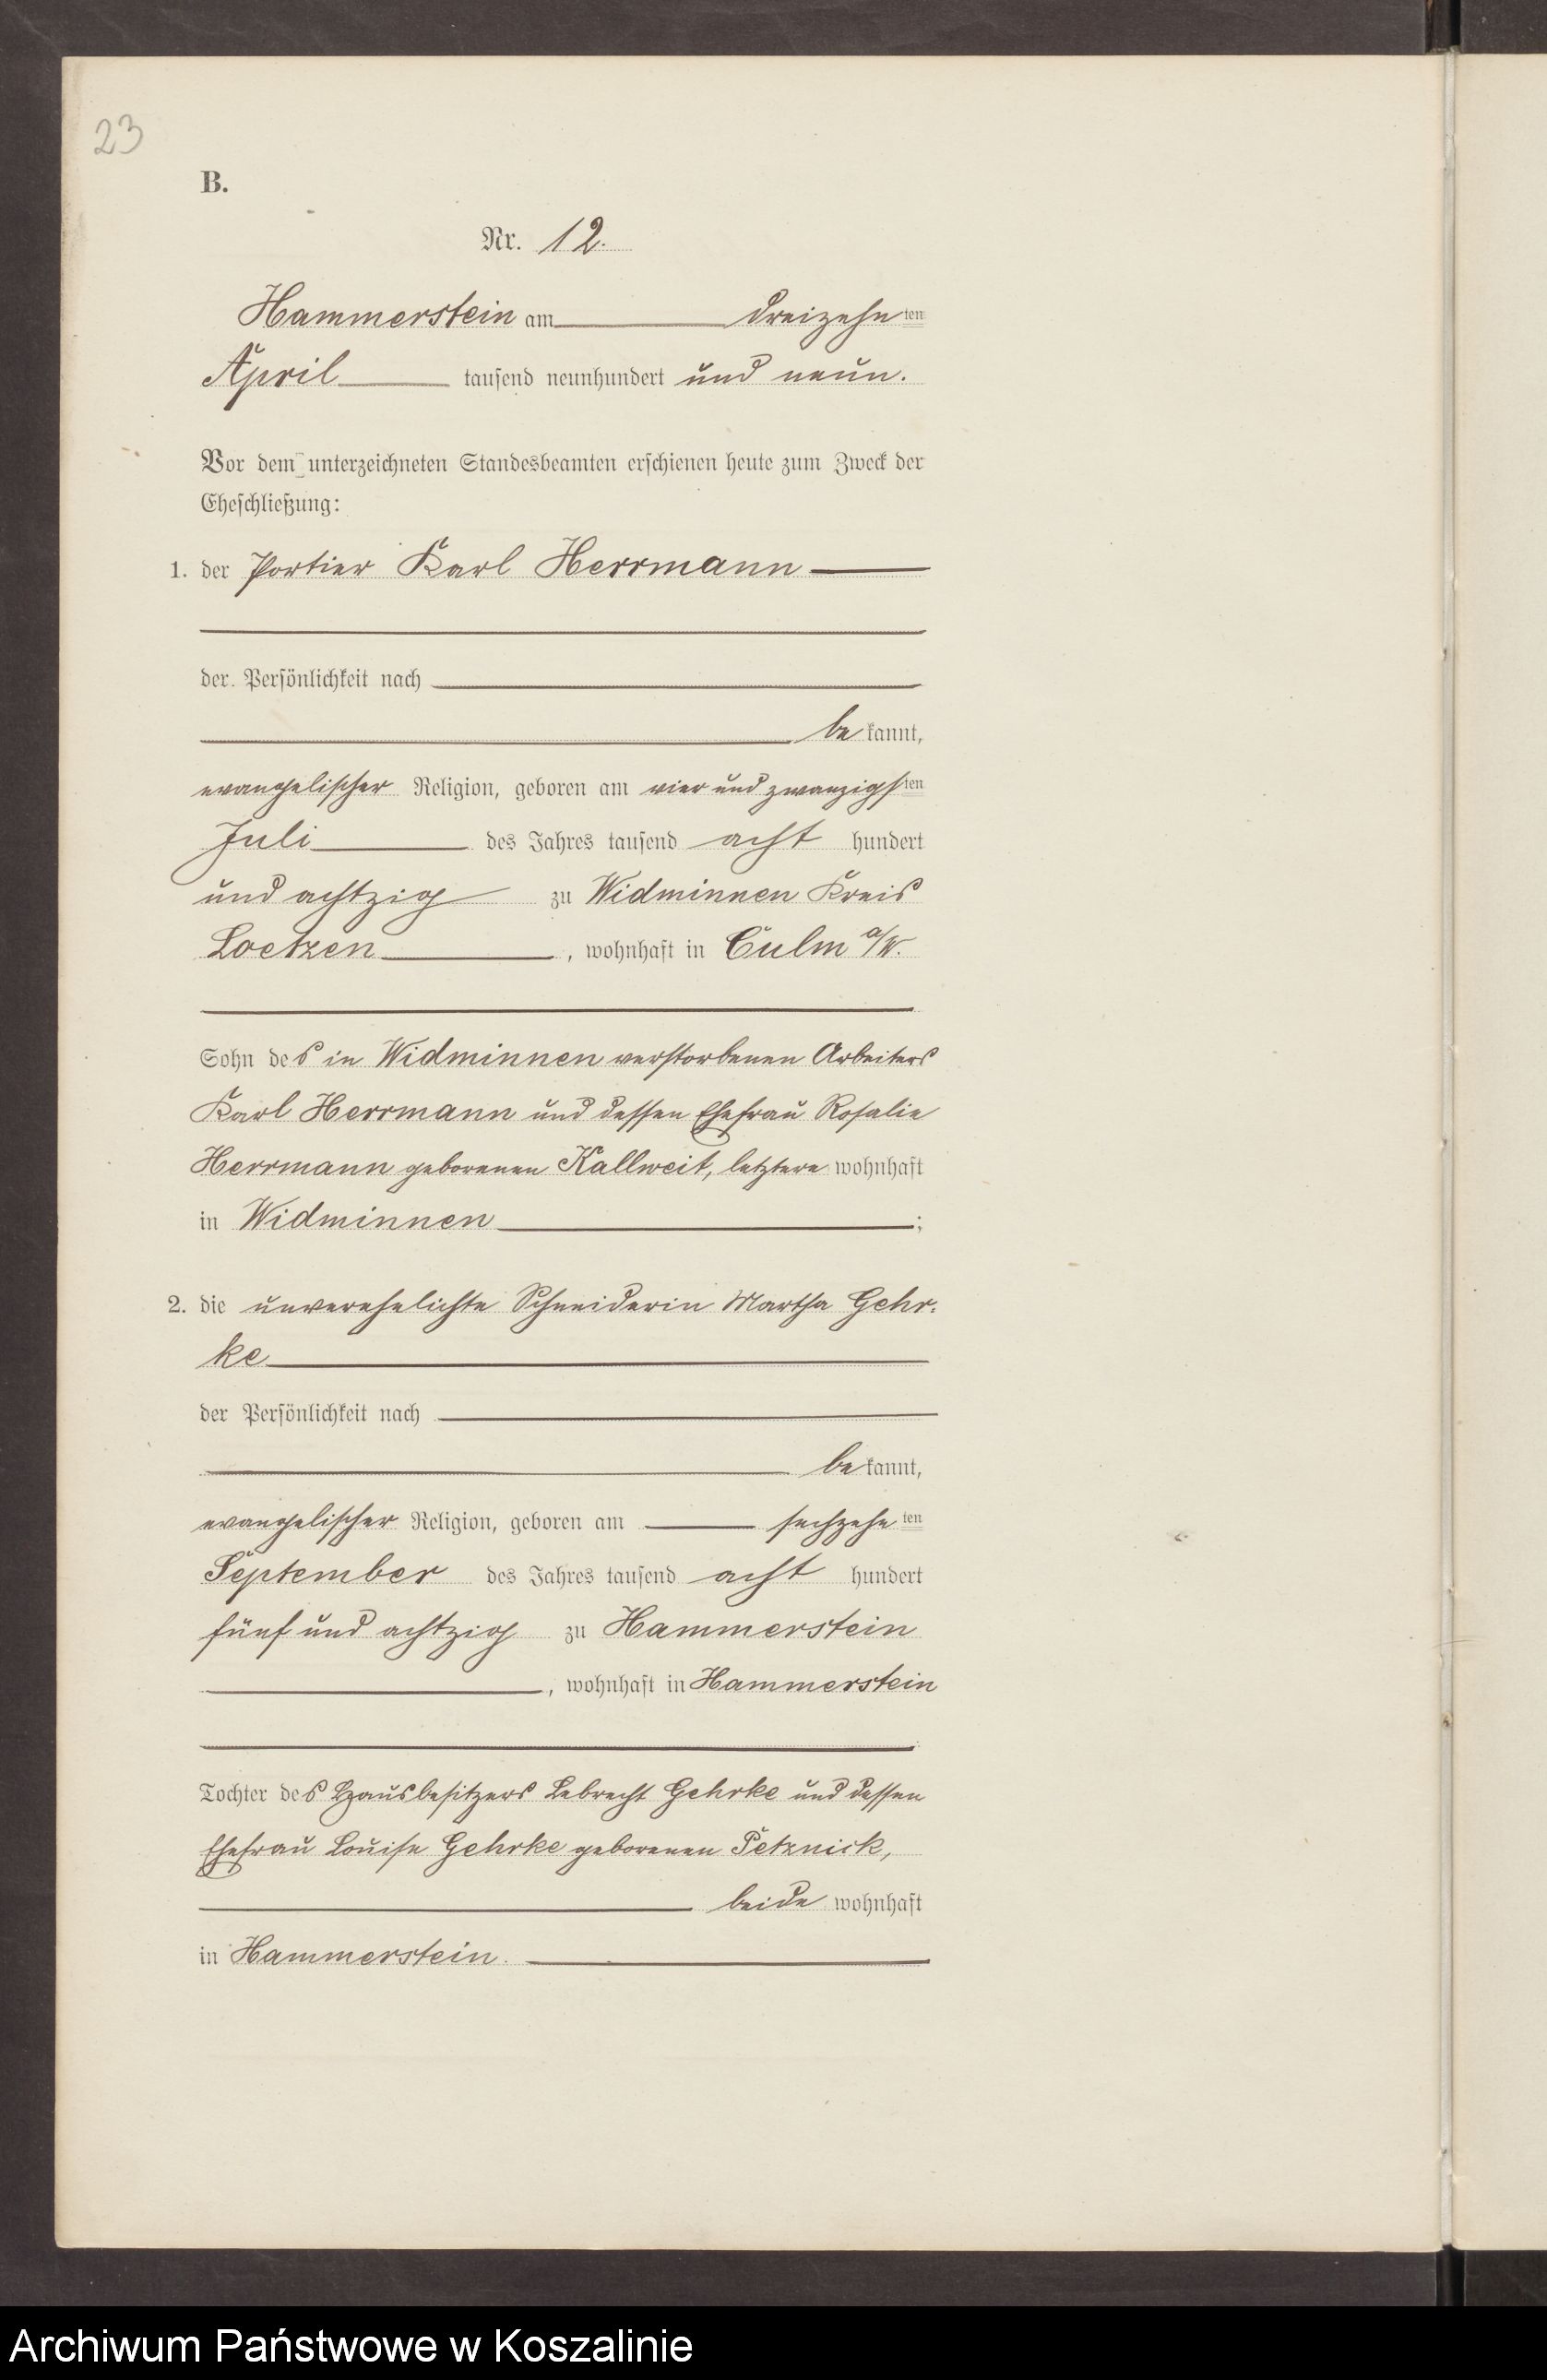 23
B.
Nr. 12.
Hammerstein am dreizehnten
April tausend neunhundert und neun.
Vor dem unterzeichneten Standesbeamten erschienen heute zum Zweck der
Eheschließung:
1. der Portier Karl Herrmann
der Persönlichkeit nach
bekannt,
evangelischer Religion, geboren am vier und zwanzigsten
Juli des Jahres tausend acht hundert
und achtzig zu Widminnen Kreis
Loetzen, wohnhaft in Culm a/W.
Sohn des in Widminnen verstorbenen Arbeiters
Karl Herrmann und dessen Ehefrau Rosalie
Herrmann geborenen Kallweit, letztere wohnhaft
in Widminnen;
2. die unverehelichte Schneiderin Martha Gehr-
ke
der Persönlichkeit nach
bekannt,
evangelischer Religion, geboren am sechzehnten
September des Jahres tausend acht hundert
fünf und achtzig zu Hammerstein
, wohnhaft in Hammerstein
Tochter des Hausbesitzers Lebrecht Gehrke und dessen
Ehefrau Louise Gehrke geborenen Petznick,
beide wohnhaft
in Hammerstein.
Archiwum Państwowe w Koszalinie